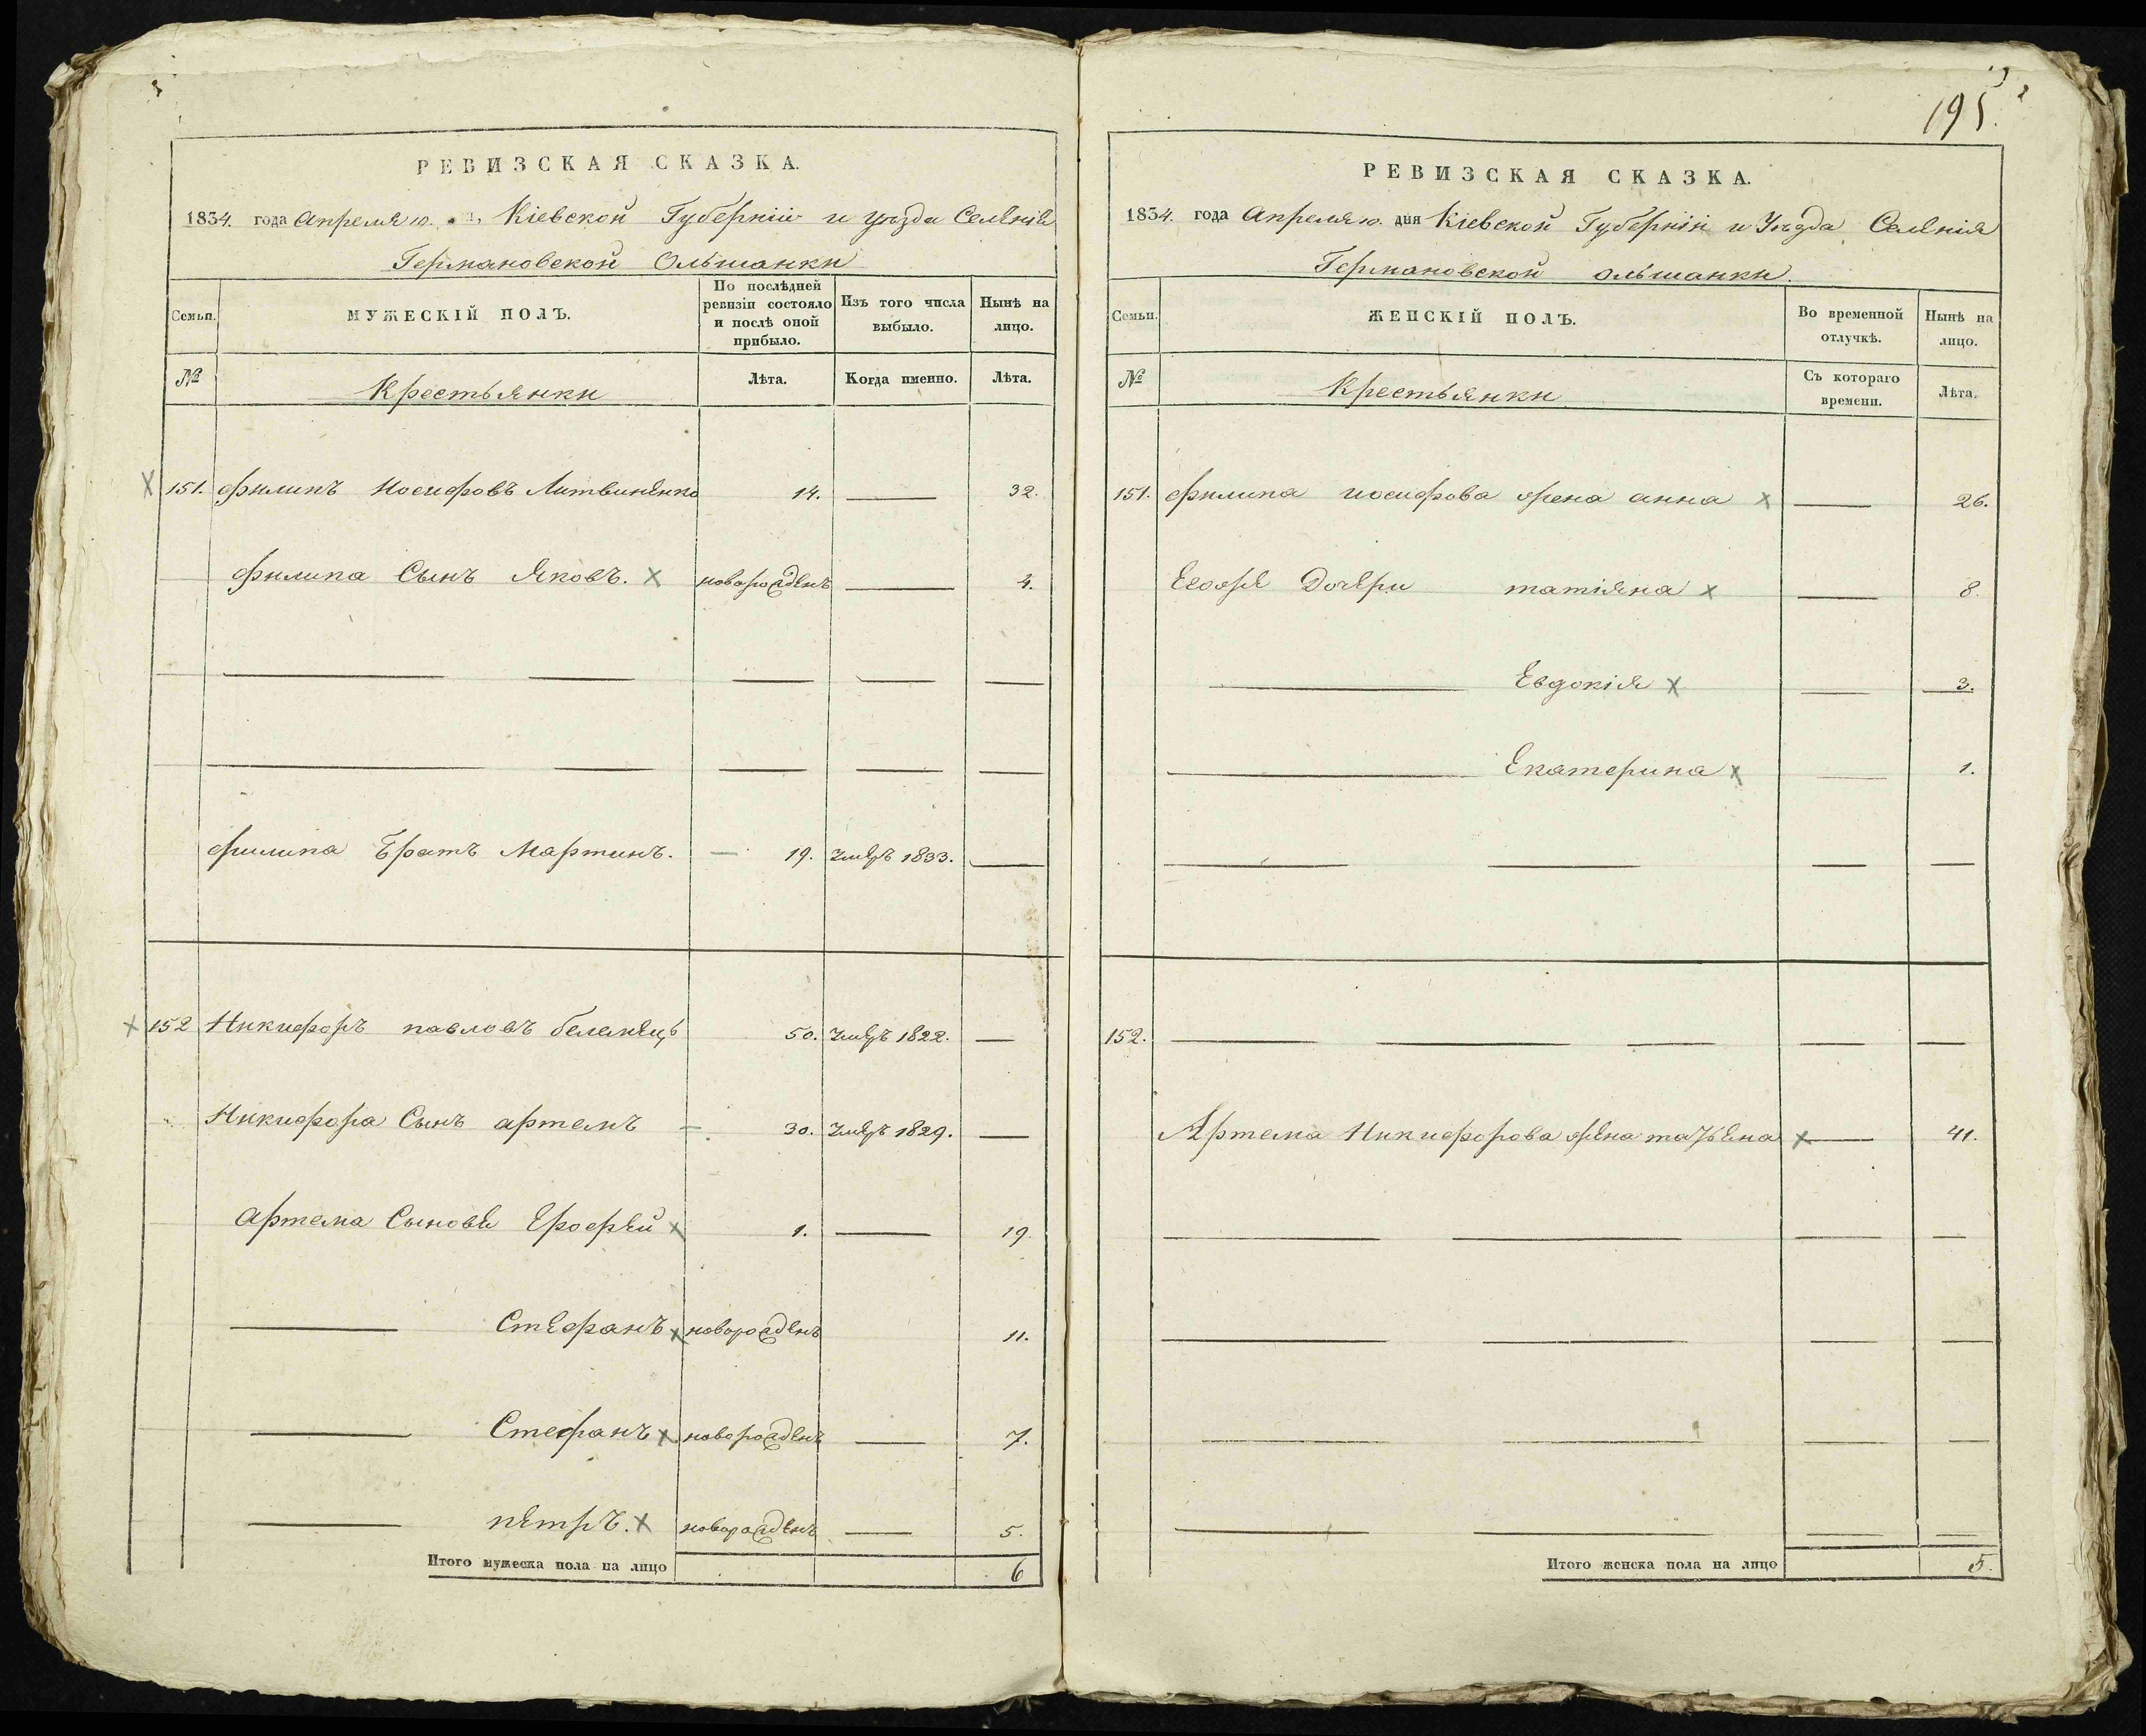 195.
РЕВИЗСКАЯ СКАЗКА.
1834. года Апреля 10. Кіевской Губерніи и уезда Селенія
Германовской Ольшанки
Семьи. МУЖЕСКІЙ ПОЛЪ. По послѣдней ревизіи состояло и послѣ оной прибыло. Изъ того числа выбыло. Нынѣ на лицо.
№ Крестьянки Лѣта. Когда именно. Лѣта.
151. Филипъ Иосифовъ Литвиненко 14. 32.
Филипа Сынъ Яковъ. новорожденъ 4.
Филипа Братъ Мартинъ. 19. умеръ 1833.
152 Никифоръ павловъ 50. умеръ 1822.
Никифора Сынъ артемъ 30. умеръ 1829.
Артема Сынове Ерофей 1. 19
Стефанъ новорожденъ 11.
Стефанъ новорожденъ 7.
петръ. новорожденъ 5.
Итого мужеска пола на лицо 6
РЕВИЗСКАЯ СКАЗКА.
1834. года Апреля 10. дня Кіевской Губерніи и Уезда Селенія
Германовской ольшанки.
Семьи. ЖЕНСКІЙ ПОЛЪ. Во временной отлучкѣ. Нынѣ на лицо.
№ Крестьянки Съ котораго времени. Лѣта.
151. Филипа иосифова жена анна 26.
Егоже Дочери татіяна 8.
Евдокія 3.
Екатерина 1.
152.
Артема Никифорова жена татьяна 41.
Итого женска пола на лицо 5.